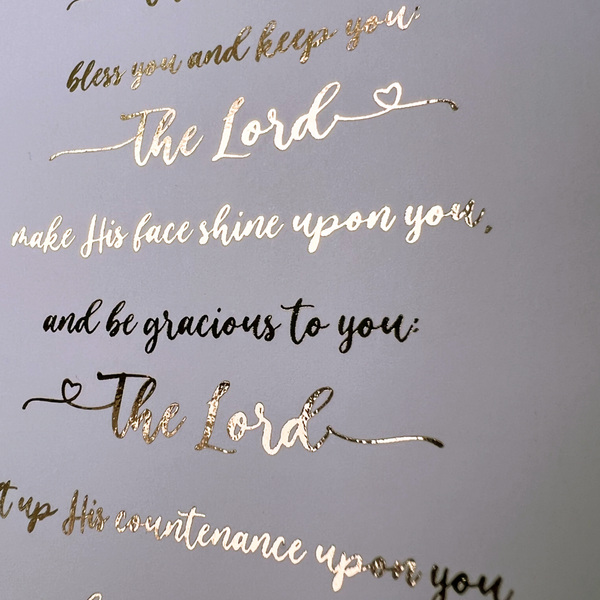 bless you and keep you
The Lord
make His face shine upon you,
and be gracious to you:
The Lord
up His countenance upon you